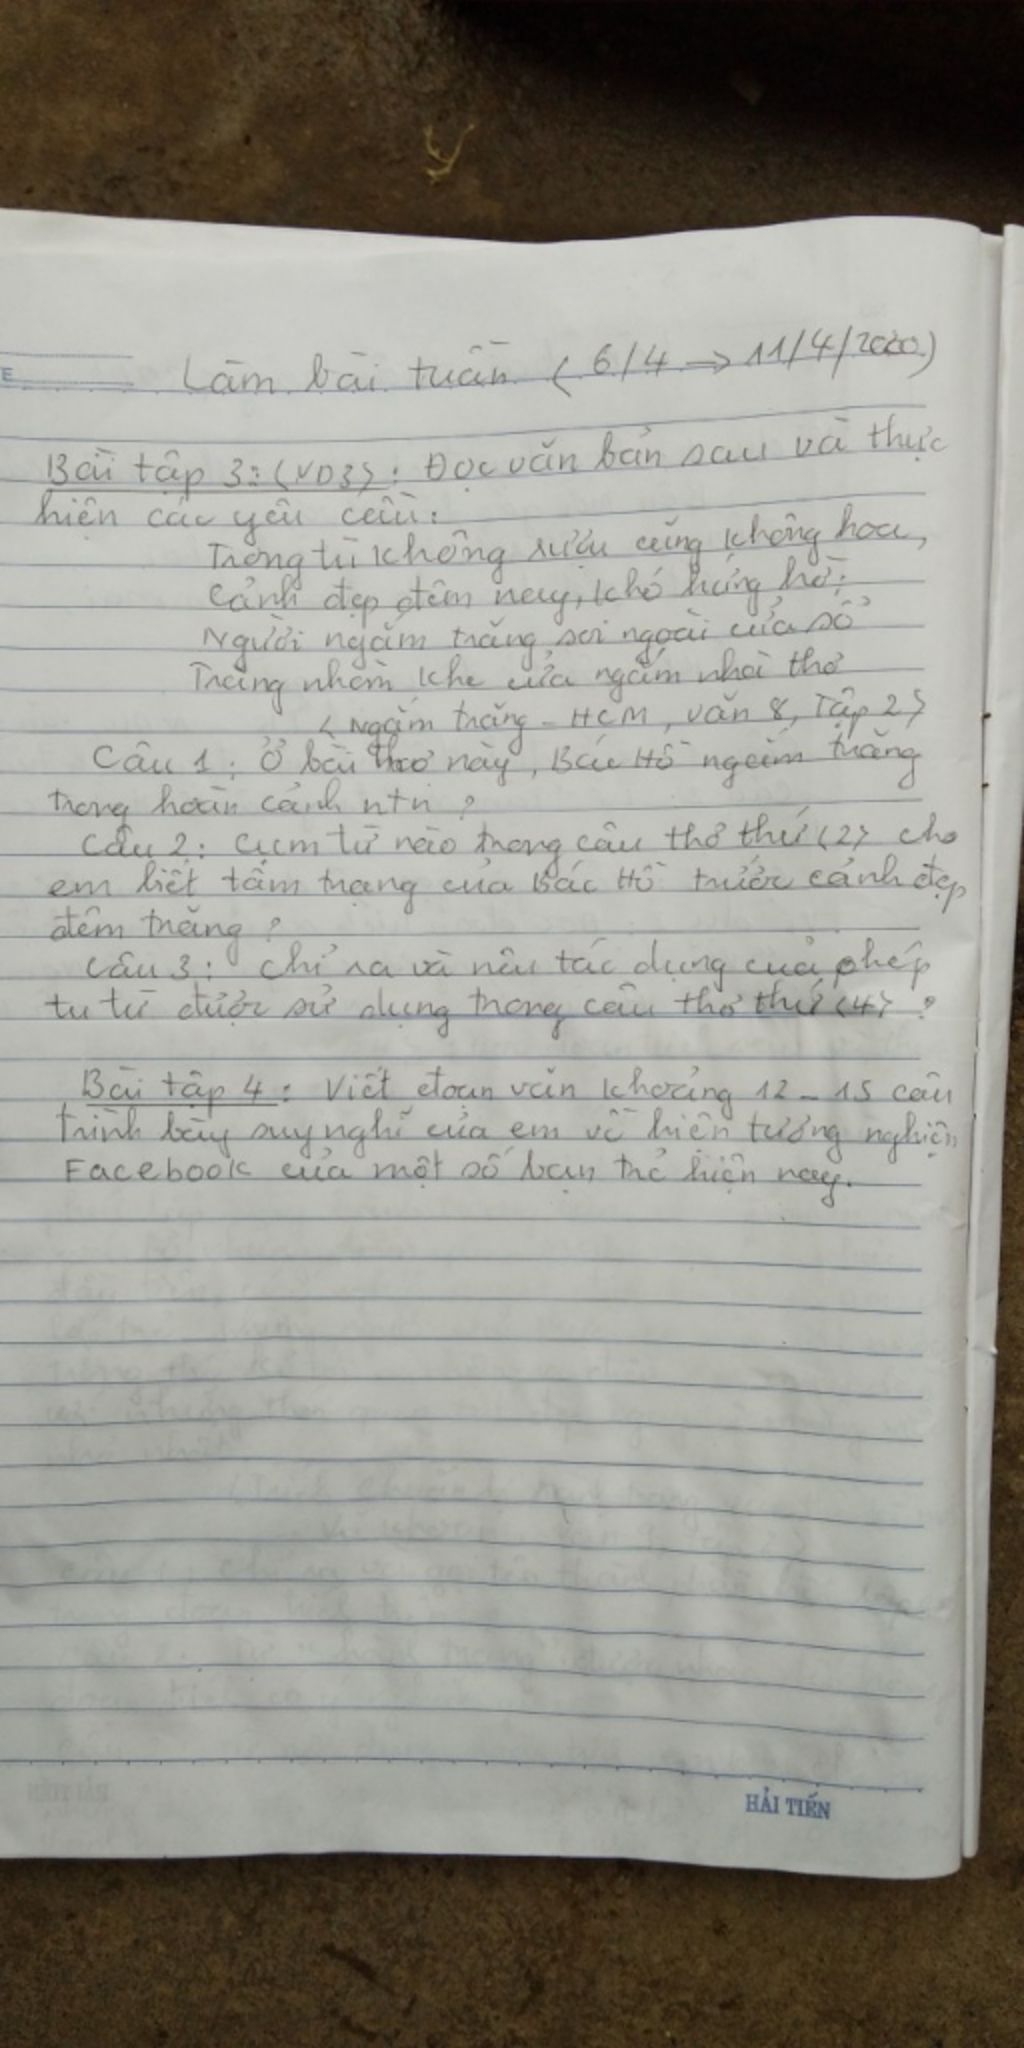 Làm bài tuần (6/4 → 11/4/2020)
Bài tập 3: (VD3): Đọc văn bản sau và thực
hiện các yêu cầu:
Trong tù không rượu cũng không hoa,
Cảnh đẹp đêm nay, khó hững hờ;
Người ngắm trăng soi ngoài cửa sổ
Trăng nhòm khe cửa ngắm nhà thơ
(Ngắm trăng - HCM, văn 8, Tập 2)
Câu 1: Ở bài thơ này, Bác Hồ ngắm trăng
trong hoàn cảnh ntn?
Câu 2: Cụm từ nào trong câu thơ thứ (2) cho
em biết tâm trạng của Bác Hồ trước cảnh đẹp
đêm trăng?
Câu 3: Chỉ ra và nêu tác dụng của phép
tu từ được sử dụng trong câu thơ thứ (4)?
Bài tập 4: Viết đoạn văn khoảng 12 - 15 câu
trình bày suy nghĩ của em về hiện tượng nghiện
Facebook của một số bạn trẻ hiện nay.
HẢI TIẾN